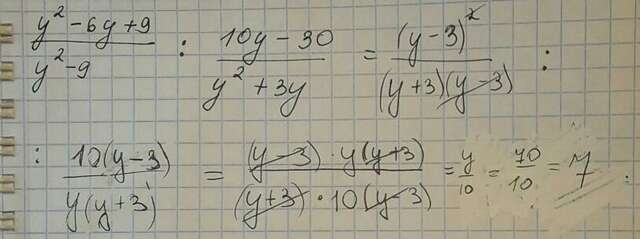 (y² - 6y + 9)/(y² - 9) : (10y - 30)/(y² + 3y) = (y - 3)²/((y + 3)(y - 3)) :
: 10(y - 3)/(y(y + 3)) = ((y - 3) · y(y + 3))/((y + 3) · 10(y - 3)) = y/10 = 70/10 = 7